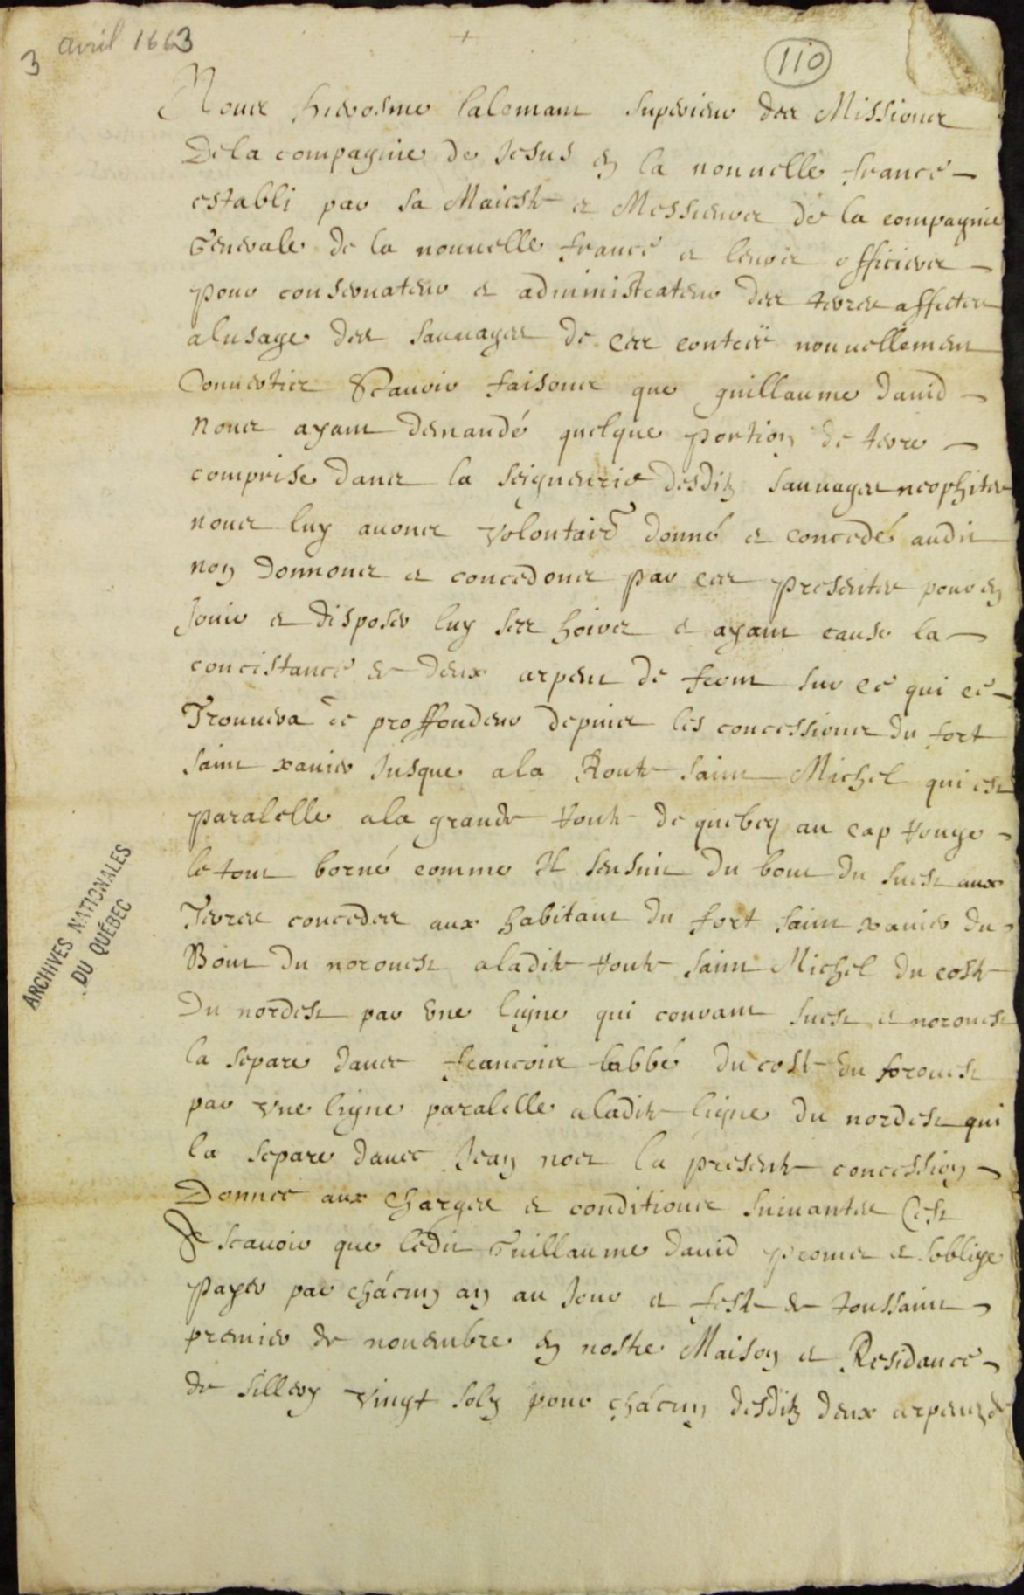 3 avril 1663
110
Nous hierosme lalemant superieur des Missions
De la compagnie de Jesus en la nouuelle france
establi par sa Maiesté et Messieurs de la compagnie
Generale de la nouuelle france et leurs officiers
pour conseruateur et administrateur des terres affectees
a lusage des sauuages de ces contrës nouuellement
Conuertis Scauoir faisons que guillaume dauid
Nous ayant demandé quelque portion de terre
comprise dans la seigneurie desditz sauuages neophites
nous luy auons volontairẽ donné et concedé audit
nom donnons et concedons par ces presentes pour en
Jouir et disposer luy ses hoirs et ayant cause la
concistance de deux arpent de front sur ce qui ce
Trouuera de proffondeur depuis les concessions du fort
saint xauier Jusque a la Route saint Michel qui est
paralelle a la grande Route de quebecq au cap Rouge
le tout borné comme Il sensuit du bout du suest aux
Terres concedees aux habitant du fort saint xauier du
Bout du norouest a ladite Route saint Michel du costé
Du nordest par vne ligne qui courant suest et norouest
la separe dauec francois labbé du costé du sorouest
par vne ligne paralelle a ladite ligne du nordest qui
la separe dauec Jean noel la presente concession
Donnee aux charges et conditions suiuantes Cest
A scauoir que ledit Guillaume dauid promet et soblige
payer par chácun an au Jour et feste de toussaint
premier de nouembre en nostre Maison et Residance
de sillery vingt solz pour chácun desditz deux arpens de
ARCHIVES NATIONALES
DU QUÉBEC